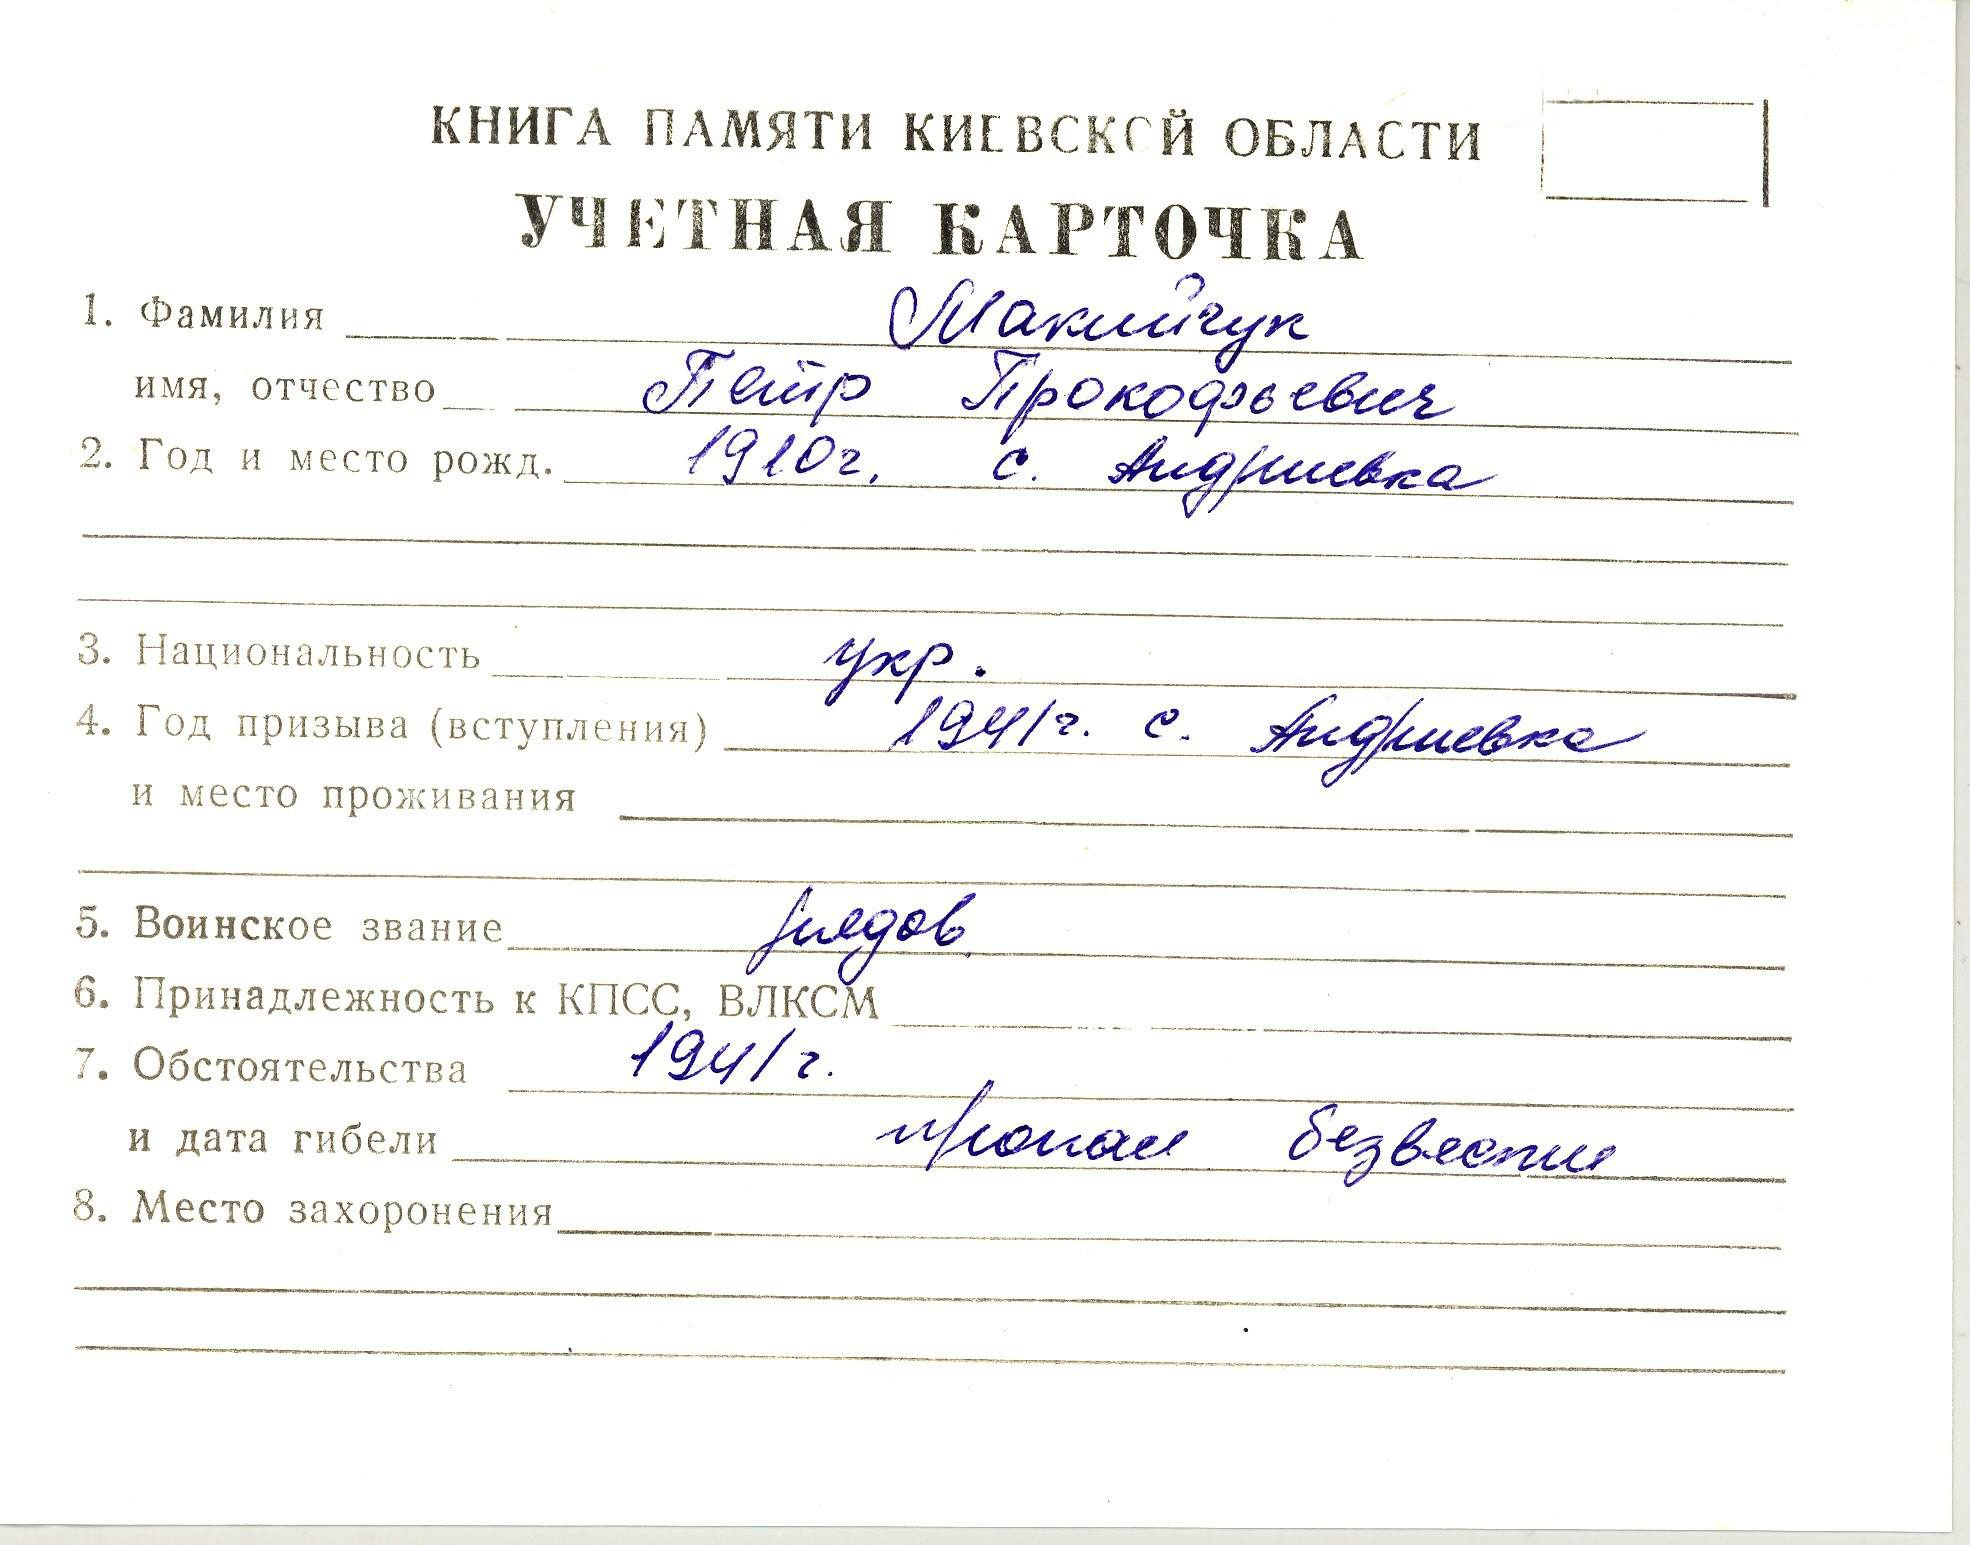 КНИГА ПАМЯТИ КИЕВСКОЙ ОБЛАСТИ
УЧЕТНАЯ КАРТОЧКА
1. Фамилия Макийчук
имя, отчество Петр Прокофьевич
2. Год и место рожд. 1910г. с. Андриевка
3. Национальность укр.
4. Год призыва (вступления) 1941г. с. Андриевка
и место проживания
5. Воинское звание рядов.
6. Принадлежность к КПСС, ВЛКСМ
7. Обстоятельства 1941г.
и дата гибели пропал безвести
8. Место захоронения